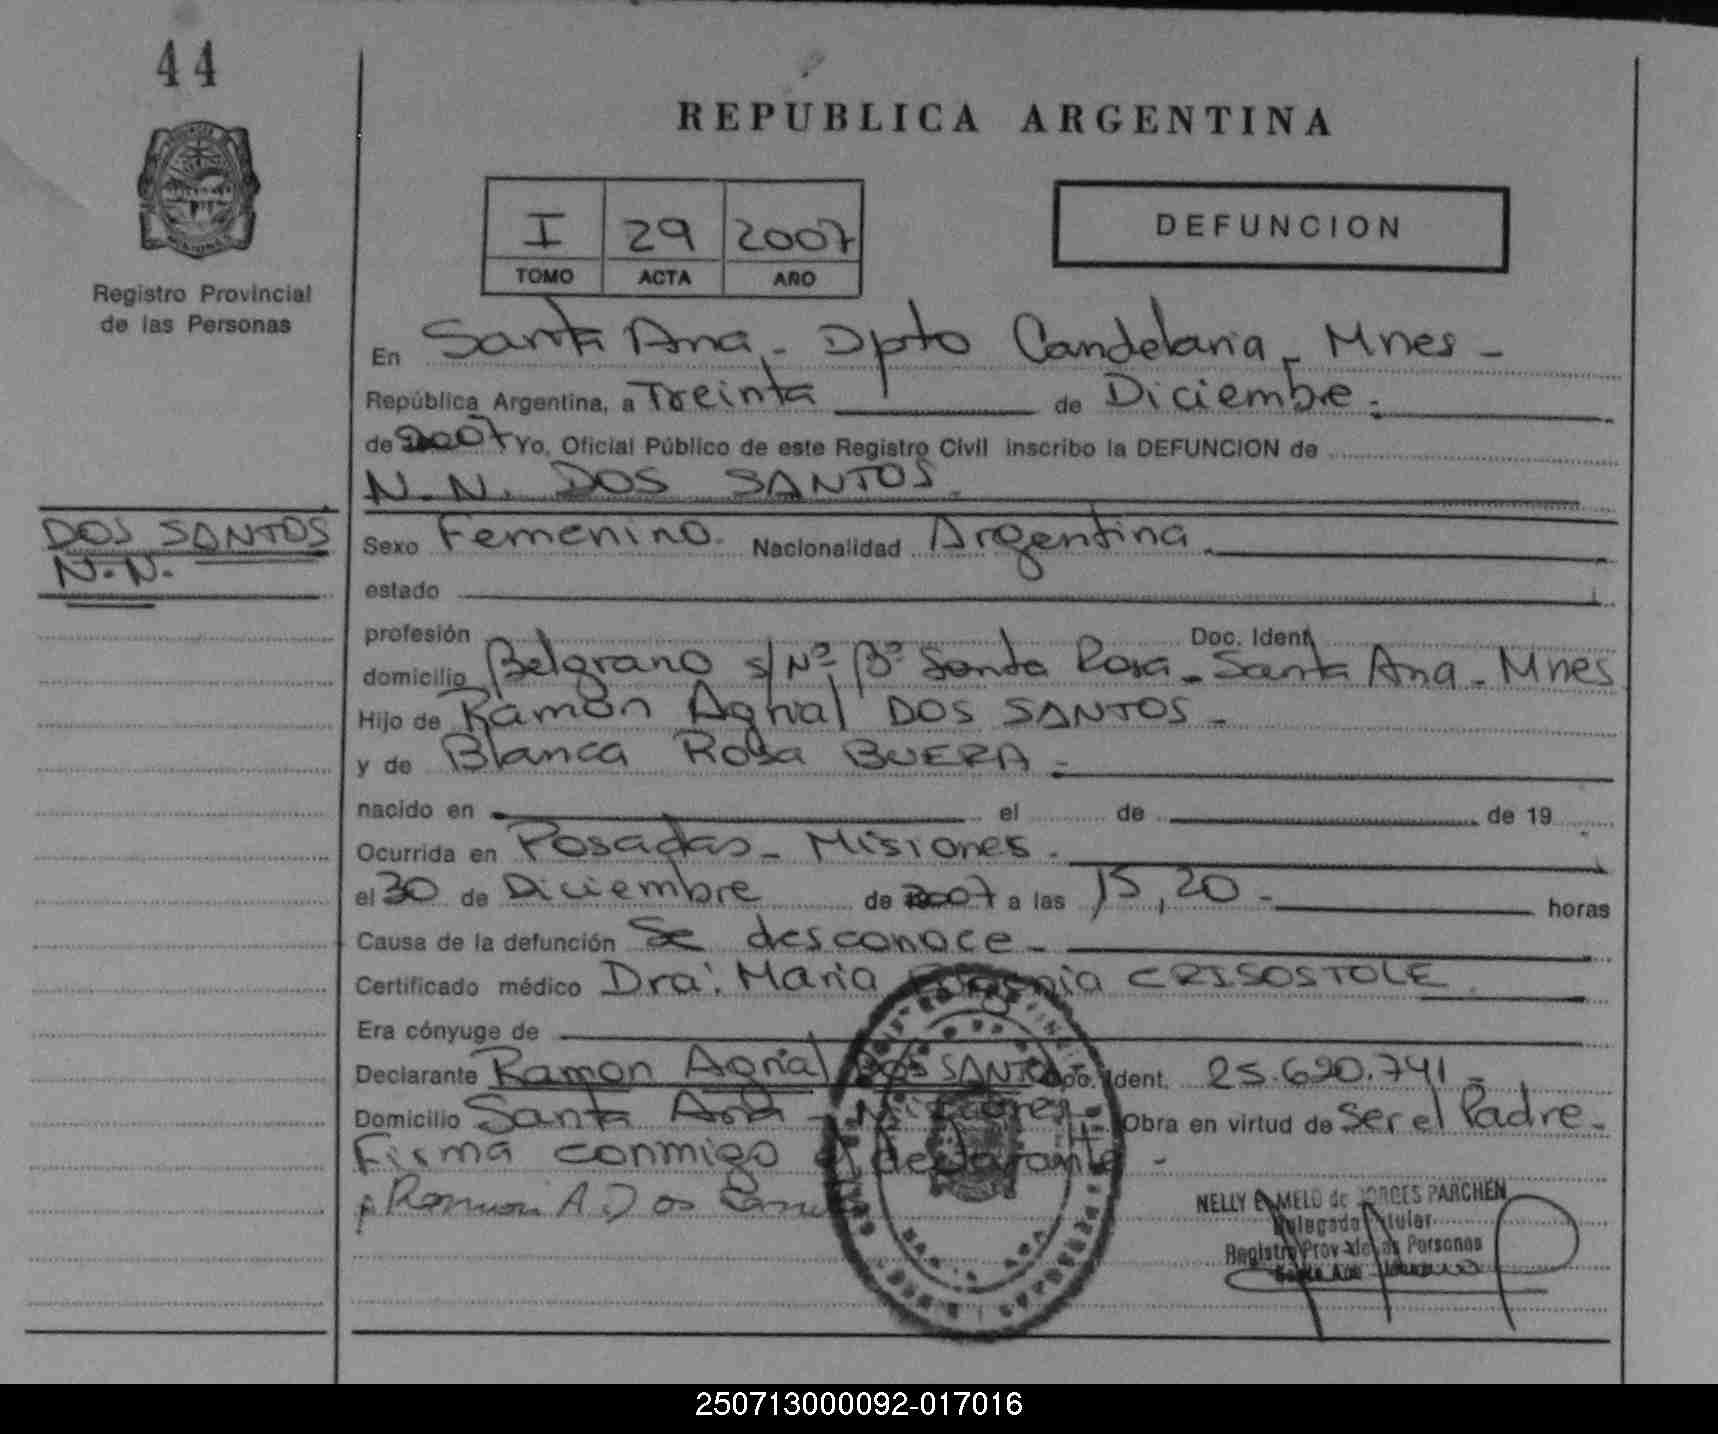 44
REPUBLICA ARGENTINA
I 29 2007
TOMO ACTA AÑO
DEFUNCION
Registro Provincial
de las Personas
En Santa Ana - Dpto Candelaria - Mnes -
República Argentina, a Treinta de Diciembre.
de 2007 Yo, Oficial Público de este Registro Civil inscribo la DEFUNCION de
N.N. DOS SANTOS.
DOS SANTOS
N.N.
Sexo Femenino. Nacionalidad Argentina.
estado
profesión Doc. Ident
domicilio Belgrano s/Nº Bº Santa Rosa - Santa Ana - Mnes
Hijo de Ramón DOS SANTOS -
y de Blanca Rosa BUERA -
nacido en el de de 19
Ocurrida en Posadas - Misiones.
el 30 de Diciembre de 2007 a las 15,20 - horas
Causa de la defunción Se desconoce -
Certificado médico Dra. Maria CRISOSTOLE.
Era cónyuge de
Declarante Ramon DOS SANTOS Doc. Ident. 25.620.741 -
Domicilio Santa Ana - Misiones Obra en virtud de ser el Padre.
Firma conmigo el declarante -
Ramon A. Dos
NELLY E. MELO de JORGES PARCHEN
Delegada Titular
Registro Prov. de las Personas
250713000092-017016